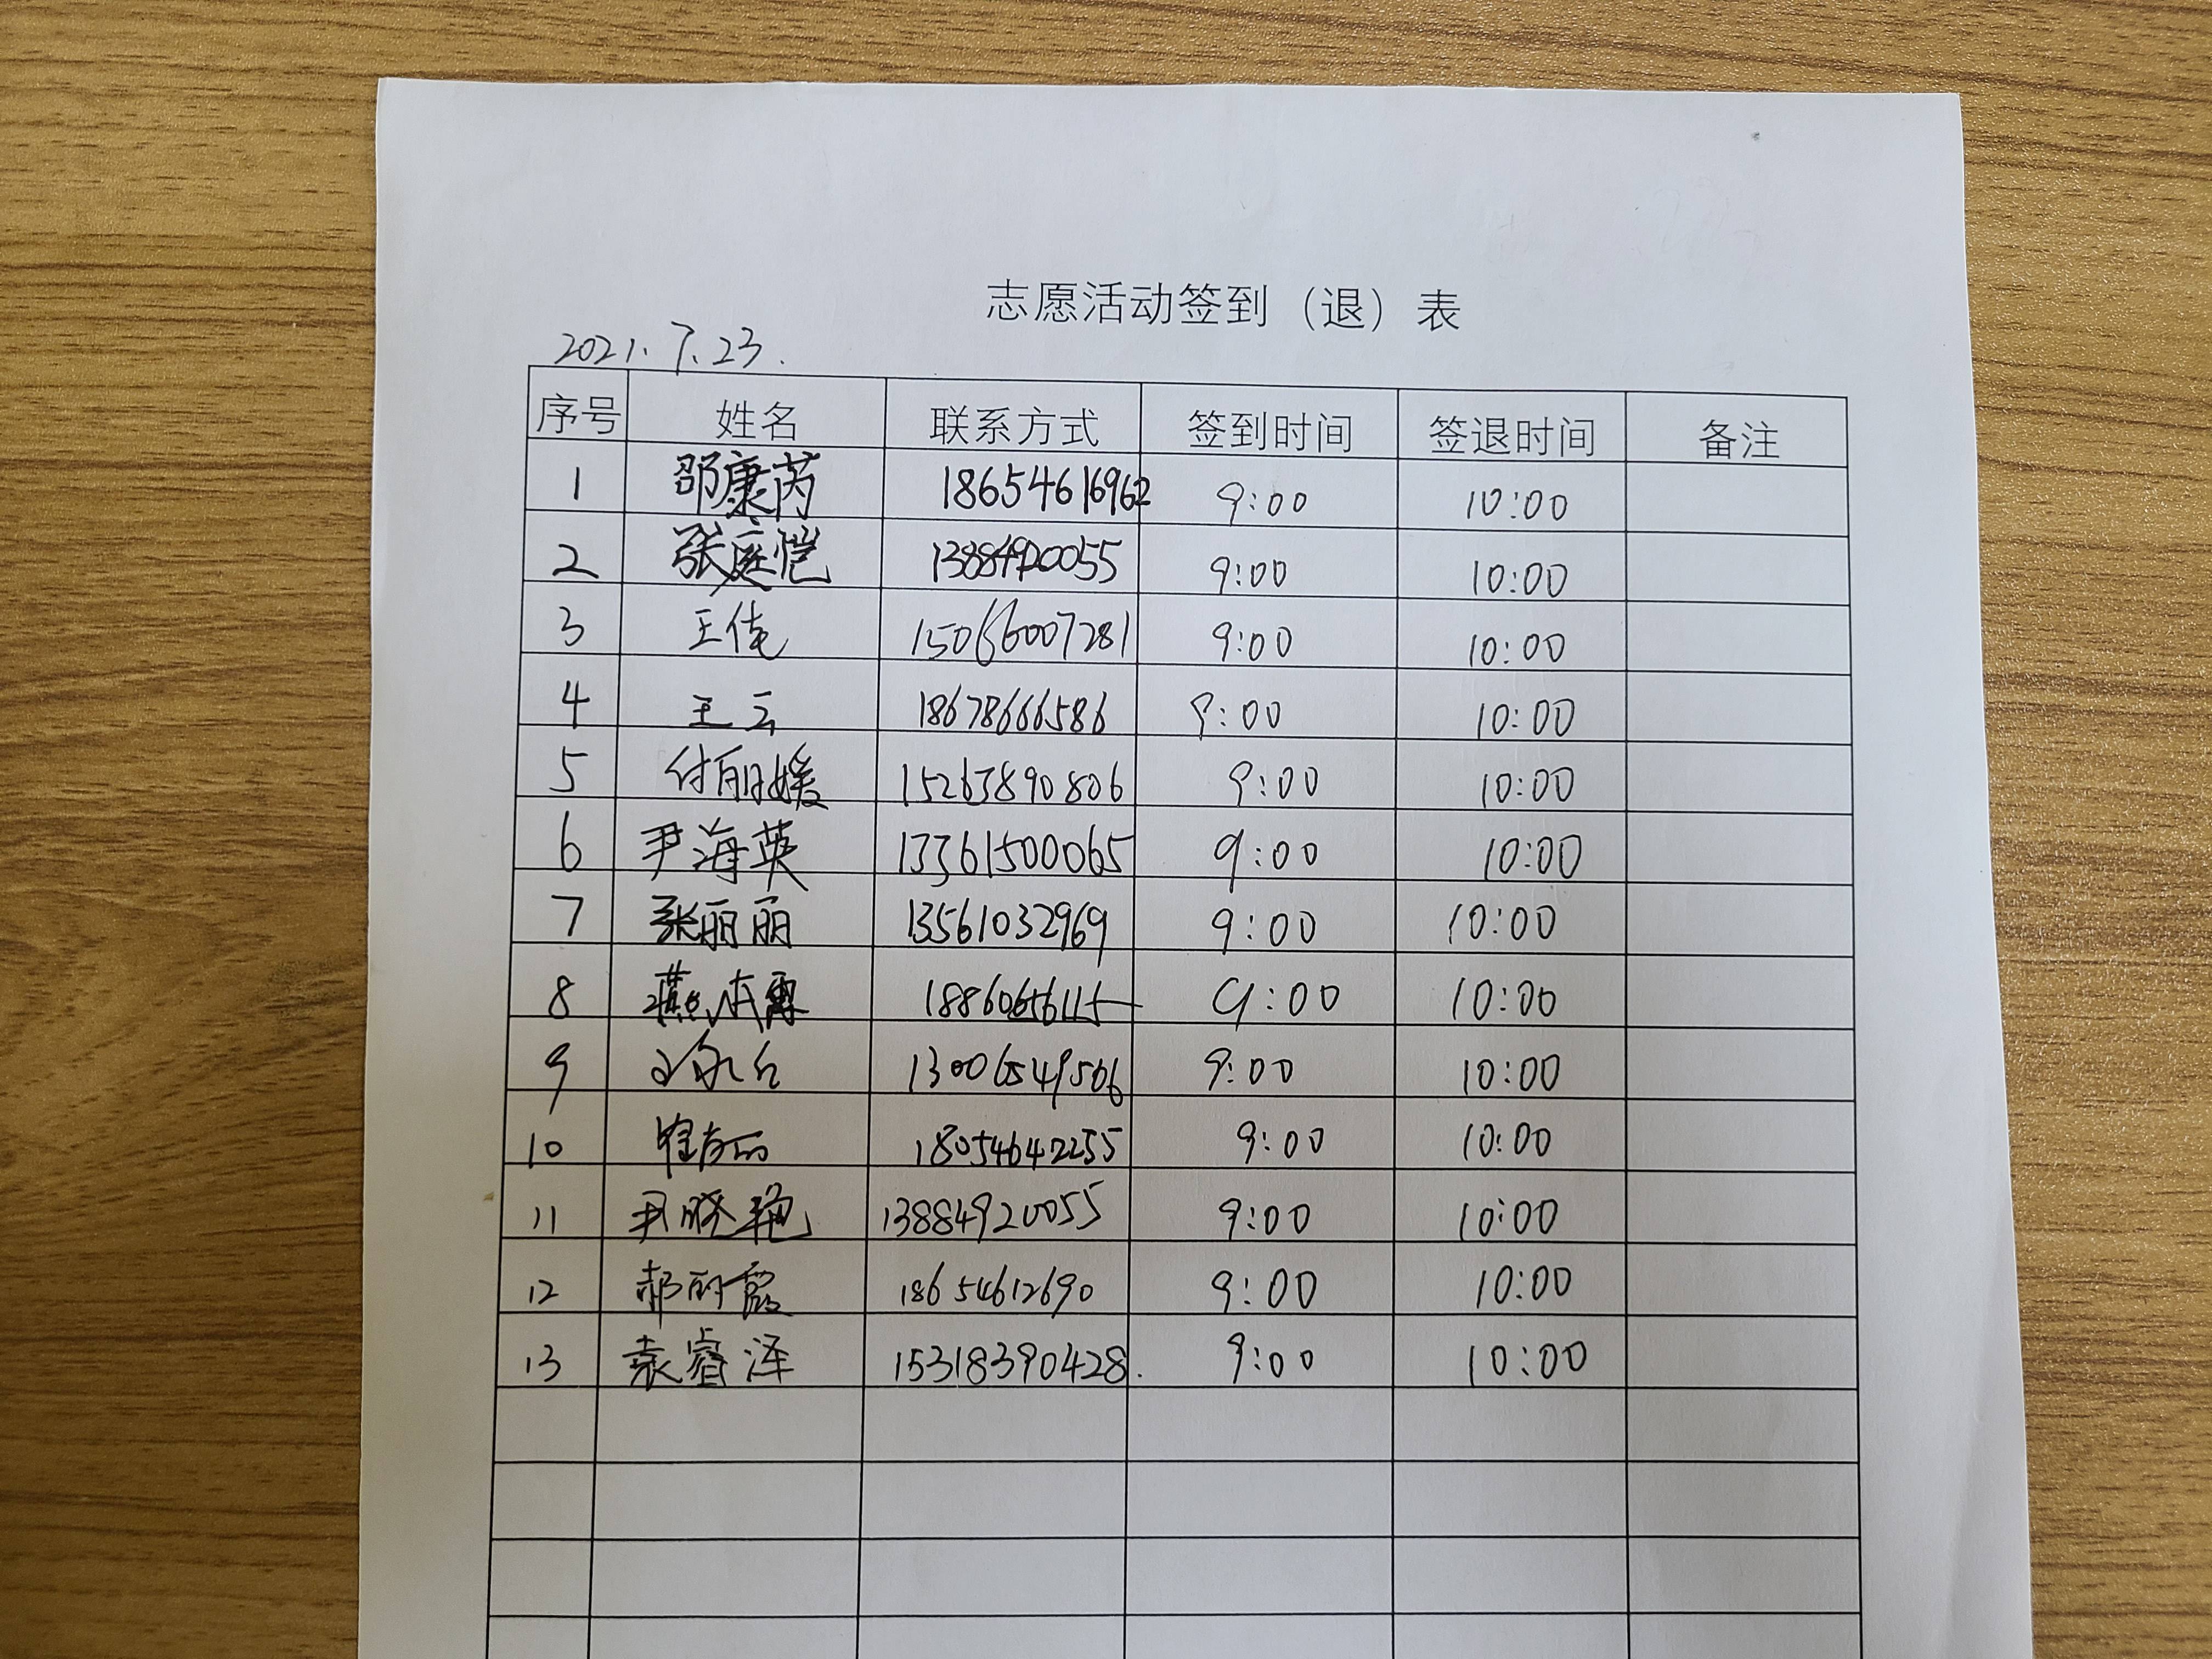 志愿活动签到（退）表
2021.7.23.
序号 姓名 联系方式 签到时间 签退时间 备注
1 邵康芮 18654616962 9:00 10:00
2 张庭恺 13884920055 9:00 10:00
3 王倩 15066007281 9:00 10:00
4 王云 18678666586 9:00 10:00
5 付丽媛 15263890806 9:00 10:00
6 尹海英 13361500065 9:00 10:00
7 张丽丽 13561032969 9:00 10:00
8 9:00 10:00
9 13006549506 9:00 10:00
10 18054642255 9:00 10:00
11 尹晓艳 13884920055 9:00 10:00
12 郝丽霞 18654612690 9:00 10:00
13 袁睿泽 15318390428. 9:00 10:00